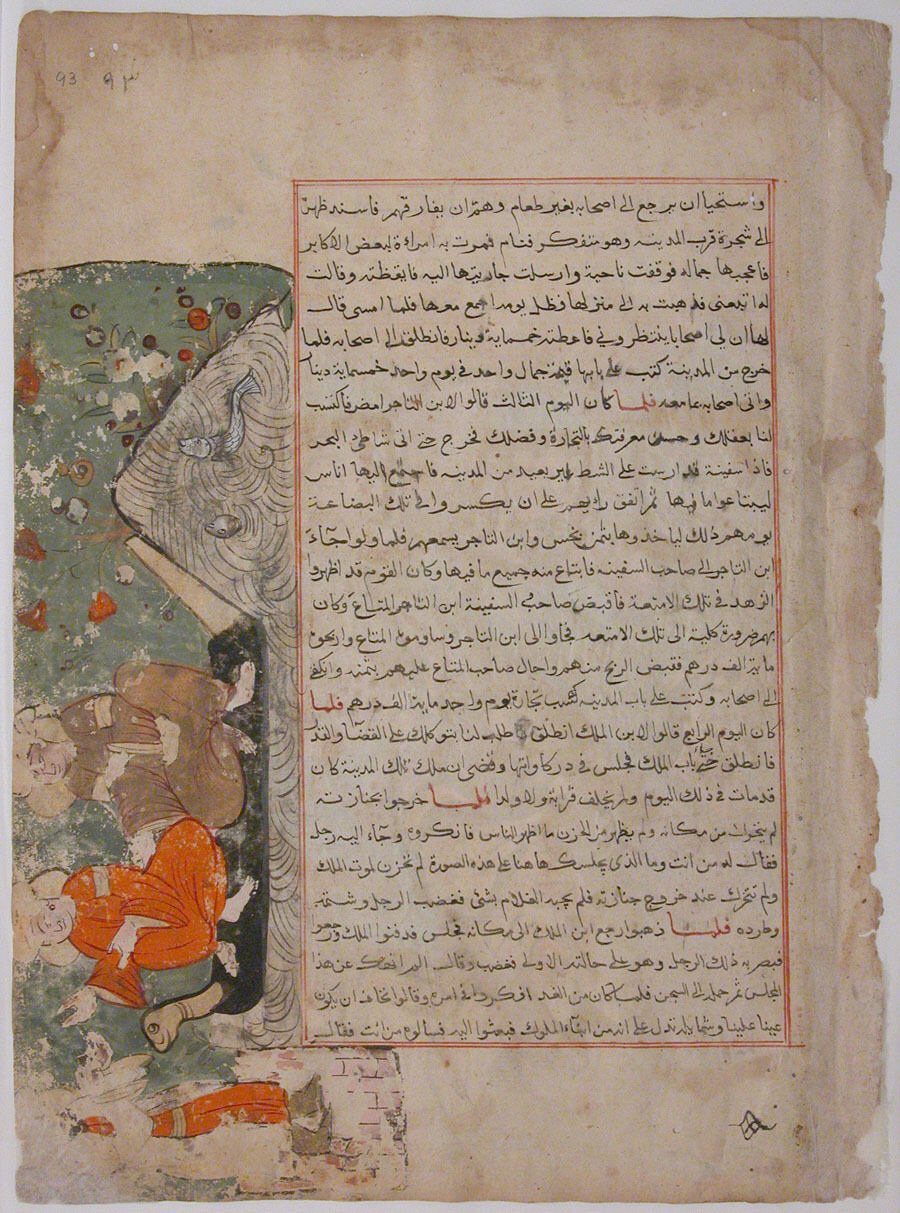 93 ٩٣
واستحيا ان يرجع الى اصحابه بغير طعام وهم ان يفارقهم فاسند ظهره
الى شجرة قرب المدينه وهو متفكر فنام فمرت به امراءة لبعض الاكابر
فاعجبها جماله فوقفت ناحية وارسلت جاريتها اليه فايقظته وقالت
له اتبعنى فذهبت به الى منزلها فظل يومه اجمع معها فلما امسى قال
لها ان لى اصحابا ينتظرونى فاعطته خمسماية دينار فانطلق الى اصحابه فلما
خرج من المدينة كتب على بابها قيمة جمال واحد فى يوم واحد خمسماية دينار
واتى اصحابه بما معه فلما كان اليوم الثالث قالوا لابن التاجر امض فاكتسب
لنا بعقلك وحسن معرفتك بالتجارة وفضلك فخرج حتى اتى شاطئ البحر
فاذا سفينة قد ارست على الشط غير بعيد من المدينه فاجتمع اليها اناس
ليبتاعوا ما فيها ثم اتفق رايهم على ان يكسروا تلك البضاعة
يومهم ذلك لياخذوها بثمن بخس وابن التاجر يسمعهم فلما ولوا جآء
ابن التاجر الى صاحب السفينه فابتاع منه جميع ما فيها وكان القوم قد اظهروا
الزهد فى تلك الامتعة فاقبض صاحب السفينة ابن التاجر المتاع وكان
بهم ضرورة كلية الى تلك الامتعه فجاوا الى ابن التاجر وساوموه المتاع واربحوه
ماية الف درهم فقبض الربح منهم واحال صاحب المتاع عليهم بثمنه وانكفى
الى اصحابه وكتب على باب المدينه كسب تجارة يوم واحد ماية الف درهم فلما
كان اليوم الرابع قالوا لابن الملك انطلق فاطلب لنا بتوكلك على القضآ والقدر
فانطلق حتى باب الملك فجلس فى دركاه وقضى ان ملك تلك المدينة كان
قد مات فى ذلك اليوم ولم يخلف قرابة ولا ولدا فلما خرجوا بجنازته
لم يتحرك من مكانه ولم يظهر من الحزن ما اظهر الناس فانكروه وجآء اليه رجل
فقال له من انت وما الذى يجلسك هاهنا على هذه الصورة لم تحزن لموت الملك
ولم تتحرك عند خروج جنازته فلم يجبه الغلام بشئ فغضب الرجل وشتمه
وطرده فلما ذهبوا رجع ابن الملك الى مكانه فجلس فدفنوا الملك ورجعوا
فبصر به ذلك الرجل وهو على حالته الاولى فغضب وقال الم انهك عن هذا
المجلس ثم حمله الى السجن فلما كان من الغد افكروا فى امره وقالوا نخاف ان يكون
عينا علينا وشمايله تدل على انه من ابنآء الملوك فبعثوا اليه فسالوه من انت فقال